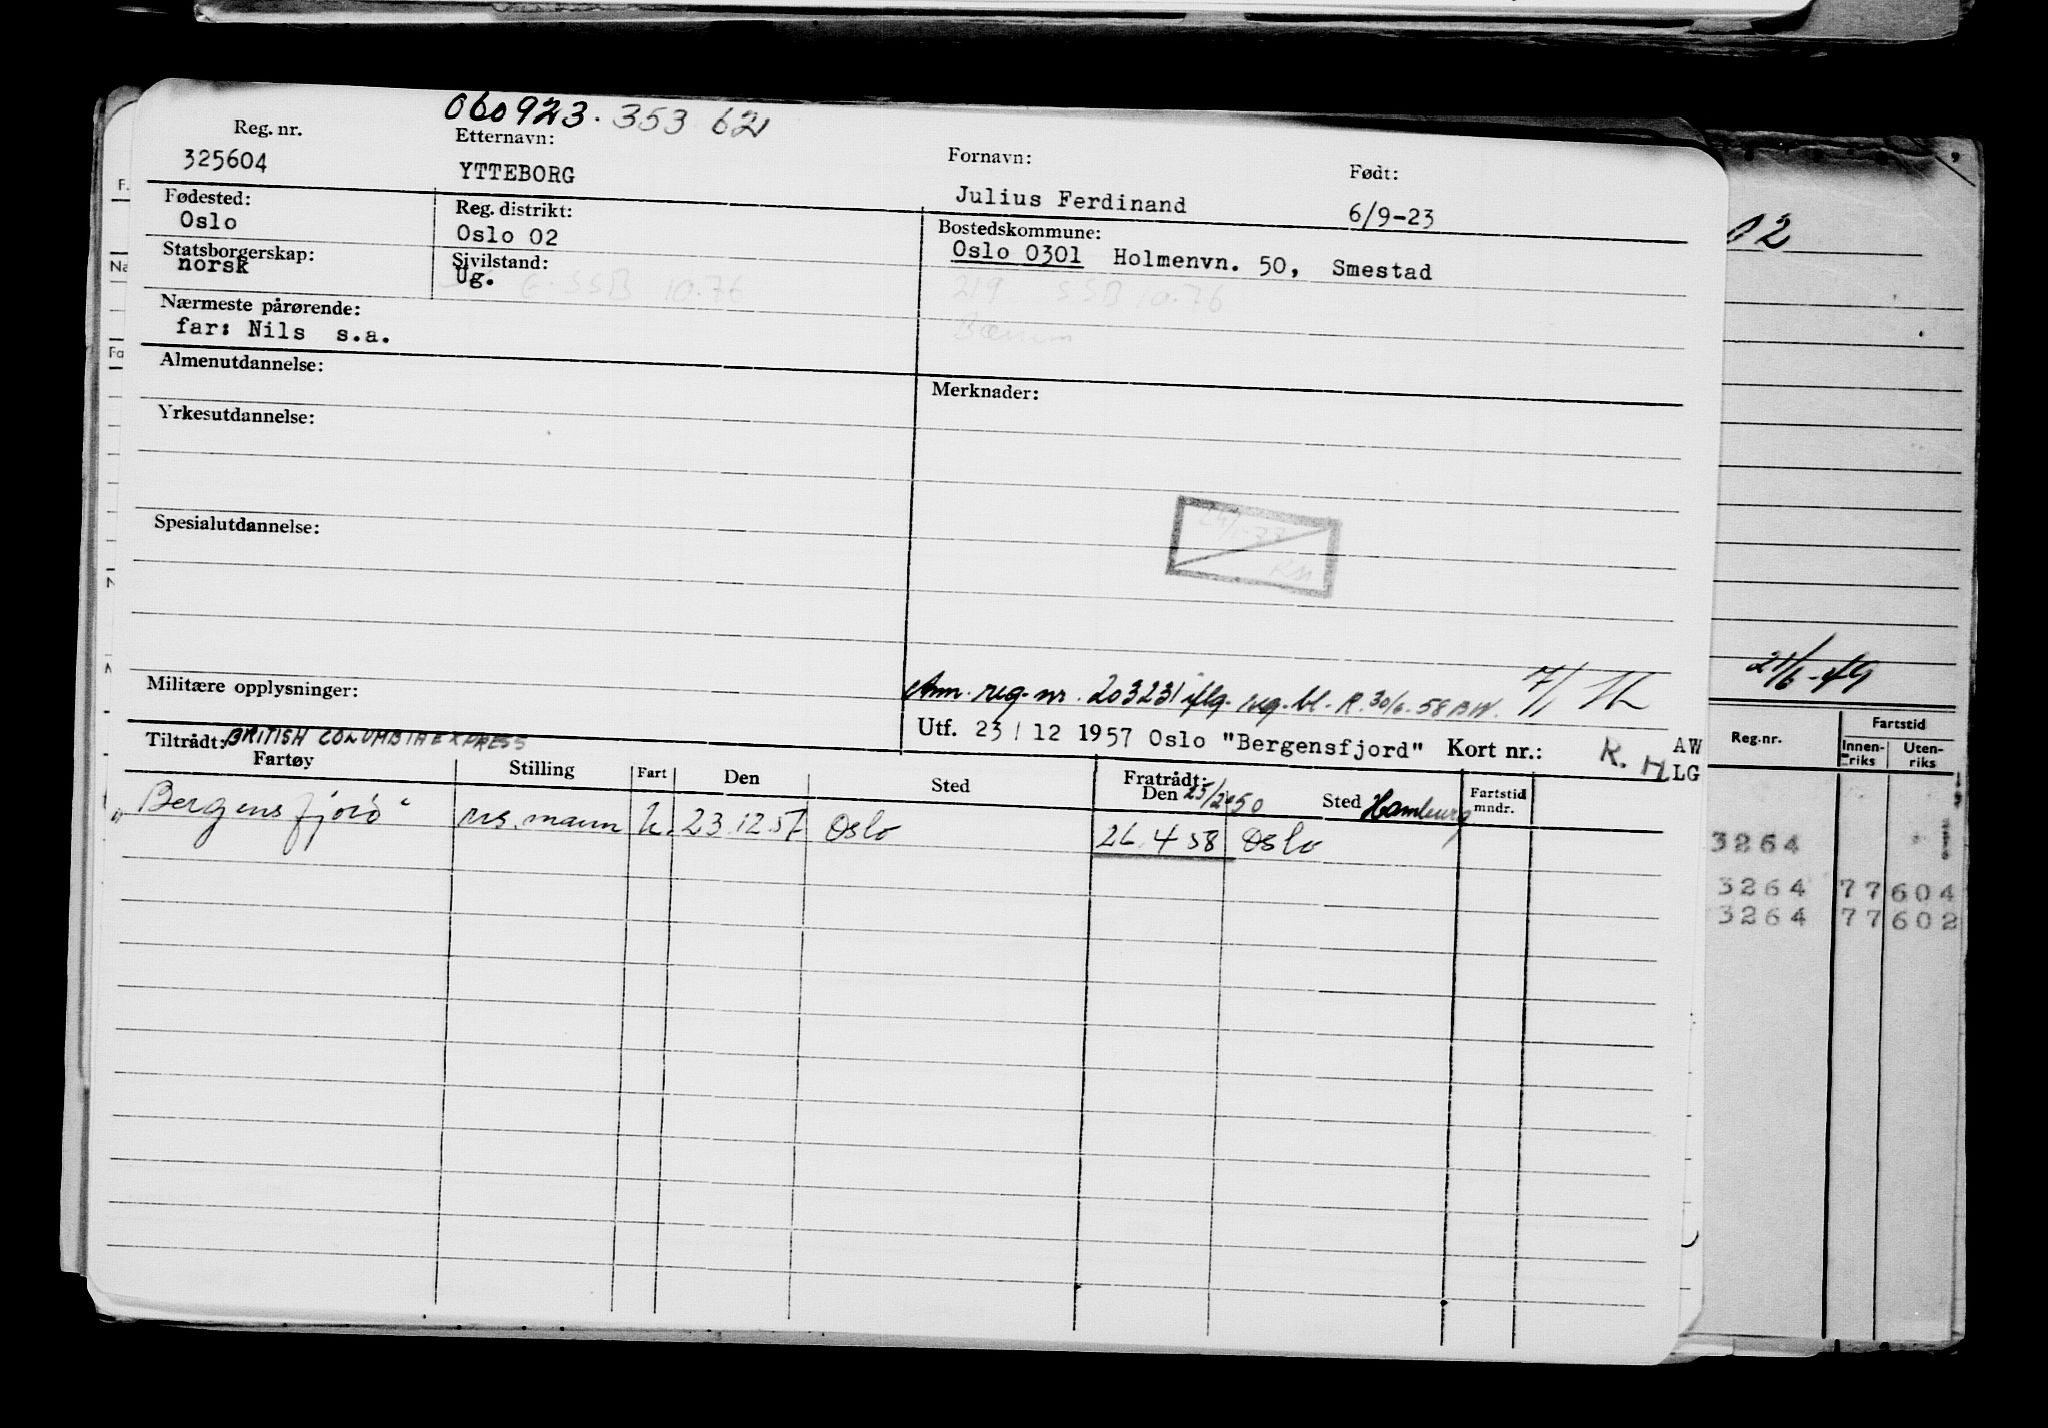 060923. 353 62
Reg. nr. Etternavn: Fornavn: Født:
325604 YTTEBORG Julius Ferdinand 6/9-23
Fødested: Reg. distrikt: Bostedskommune:
Oslo Oslo 02 Oslo 0301 Holmenvn. 50, Smestad
Statsborgerskap: Sivilstand:
norsk Ug. G. SSB 10.76 219 SSB 10.76
Nærmeste pårørende: Bærum
far: Nils s.a.
Almenutdannelse: Merknader:
Yrkesutdannelse:
Spesialutdannelse:
Militære opplysninger: Ann. reg. nr. 203231 iflg. reg. bl. R. 30/6-58 BW.
Utf. 23/12 1957 Oslo "Bergensfjord" Kort nr.: R. H AW
LG
Tiltrådt: BRITISH COLUMBIA EXPRESS
Fartøy Stilling Fart Den Sted Fratrådt: Den 50 Sted Hamburg Fartstid mndr.
"Bergensfjord" rs. mann U. 23.12.57 Oslo 26.4 58 Oslo
02
21/6
Reg.nr. Fartstid
Innen-riks Uten-riks
3264
3264 77 604
3264 77 602